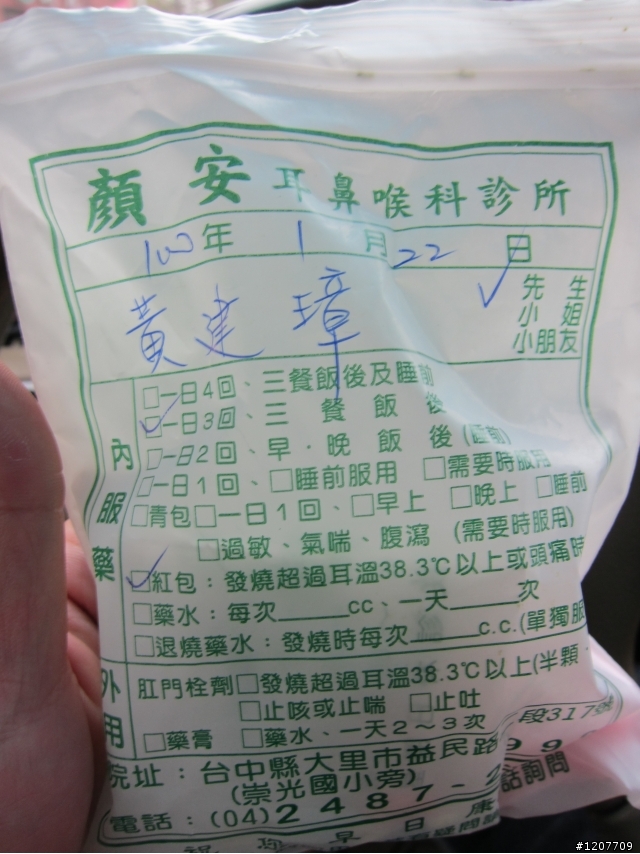 顏安耳鼻喉科診所
100年1月22日
黃建璋 ✓先生
小姐
小朋友
內服藥
□一日4回、三餐飯後及睡前
☑一日3回、三餐飯後
□一日2回、早．晚飯後(睡前)
□一日1回、□睡前服用 □需要時服用
□青包□一日1回、□早上 □晚上 □睡前
□過敏、氣喘、腹瀉 (需要時服用)
☑紅包：發燒超過耳溫38.3℃以上或頭痛時
□藥水：每次_____cc、一天_____次
□退燒藥水：發燒時每次_____c.c.(單獨服
外用
肛門栓劑□發燒超過耳溫38.3℃以上(半顆．
□止咳或止喘 □止吐
□藥膏 □藥水、一天2～3次
院址：台中縣大里市益民路 段317號
(崇光國小旁)
電話：(04)2487-2 99
話詢問
祝您早日康